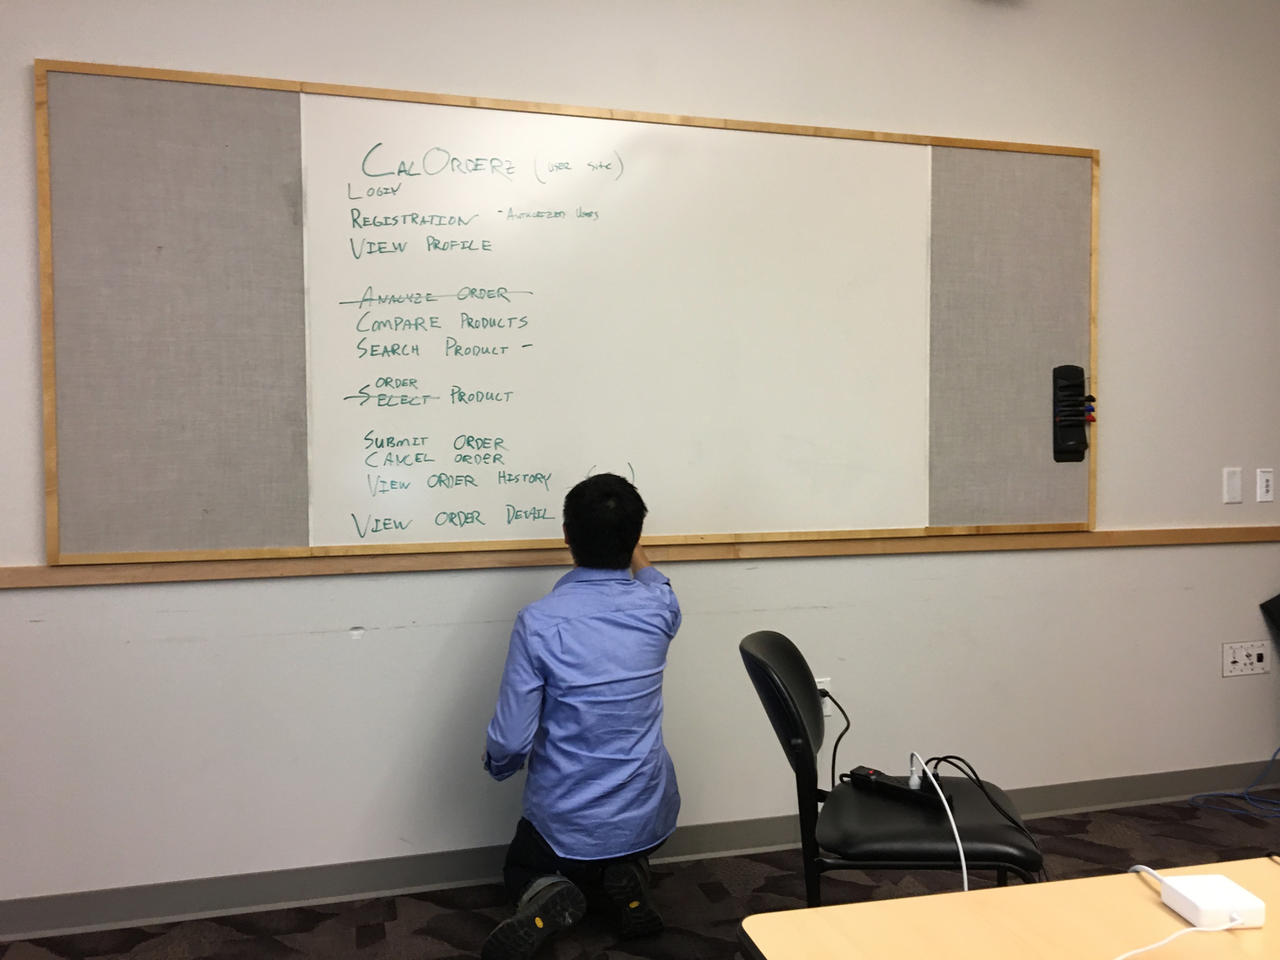 CALORDERZ (USER SITE)
LOGIN
REGISTRATION - AUTHORIZED USERS
VIEW PROFILE
ANALYZE ORDER
COMPARE PRODUCTS
SEARCH PRODUCT -
ORDER
SELECT PRODUCT
SUBMIT ORDER
CANCEL ORDER
VIEW ORDER HISTORY
VIEW ORDER DETAIL